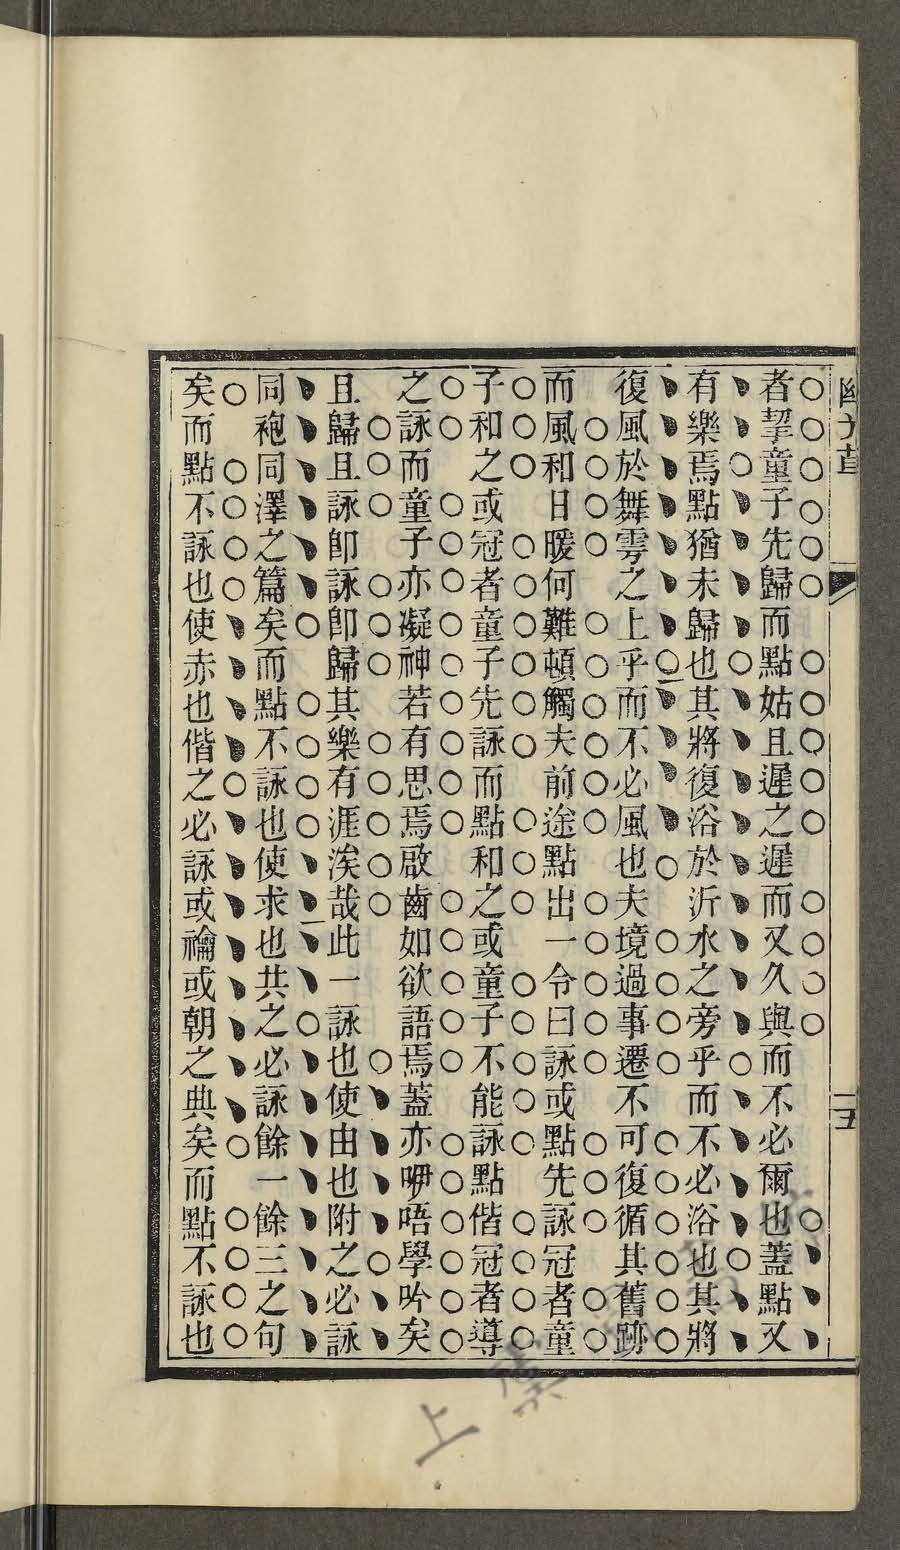 者挈童子先歸而點姑且遲之遲而又久與而不必爾也蓋點又
有樂焉點猶未歸也其將復浴於沂水之旁乎而不必浴也其將
復風於舞雩之上乎而不必風也夫境過事遷不可復循其舊跡
而風和日暖何難頓觸夫前途點出一令曰詠或點先詠冠者童
子和之或冠者童子先詠而點和之或童子不能詠點偕冠者導
之詠而童子亦凝神若有思焉啟齒如欲語焉蓋亦咿唔學吟矣
且歸且詠卽詠卽歸其樂有涯涘哉此一詠也使由也附之必詠
同袍同澤之篇矣而點不詠也使求也共之必詠餘一餘三之句
矣而點不詠也使赤也偕之必詠或禴或朝之典矣而點不詠也
上